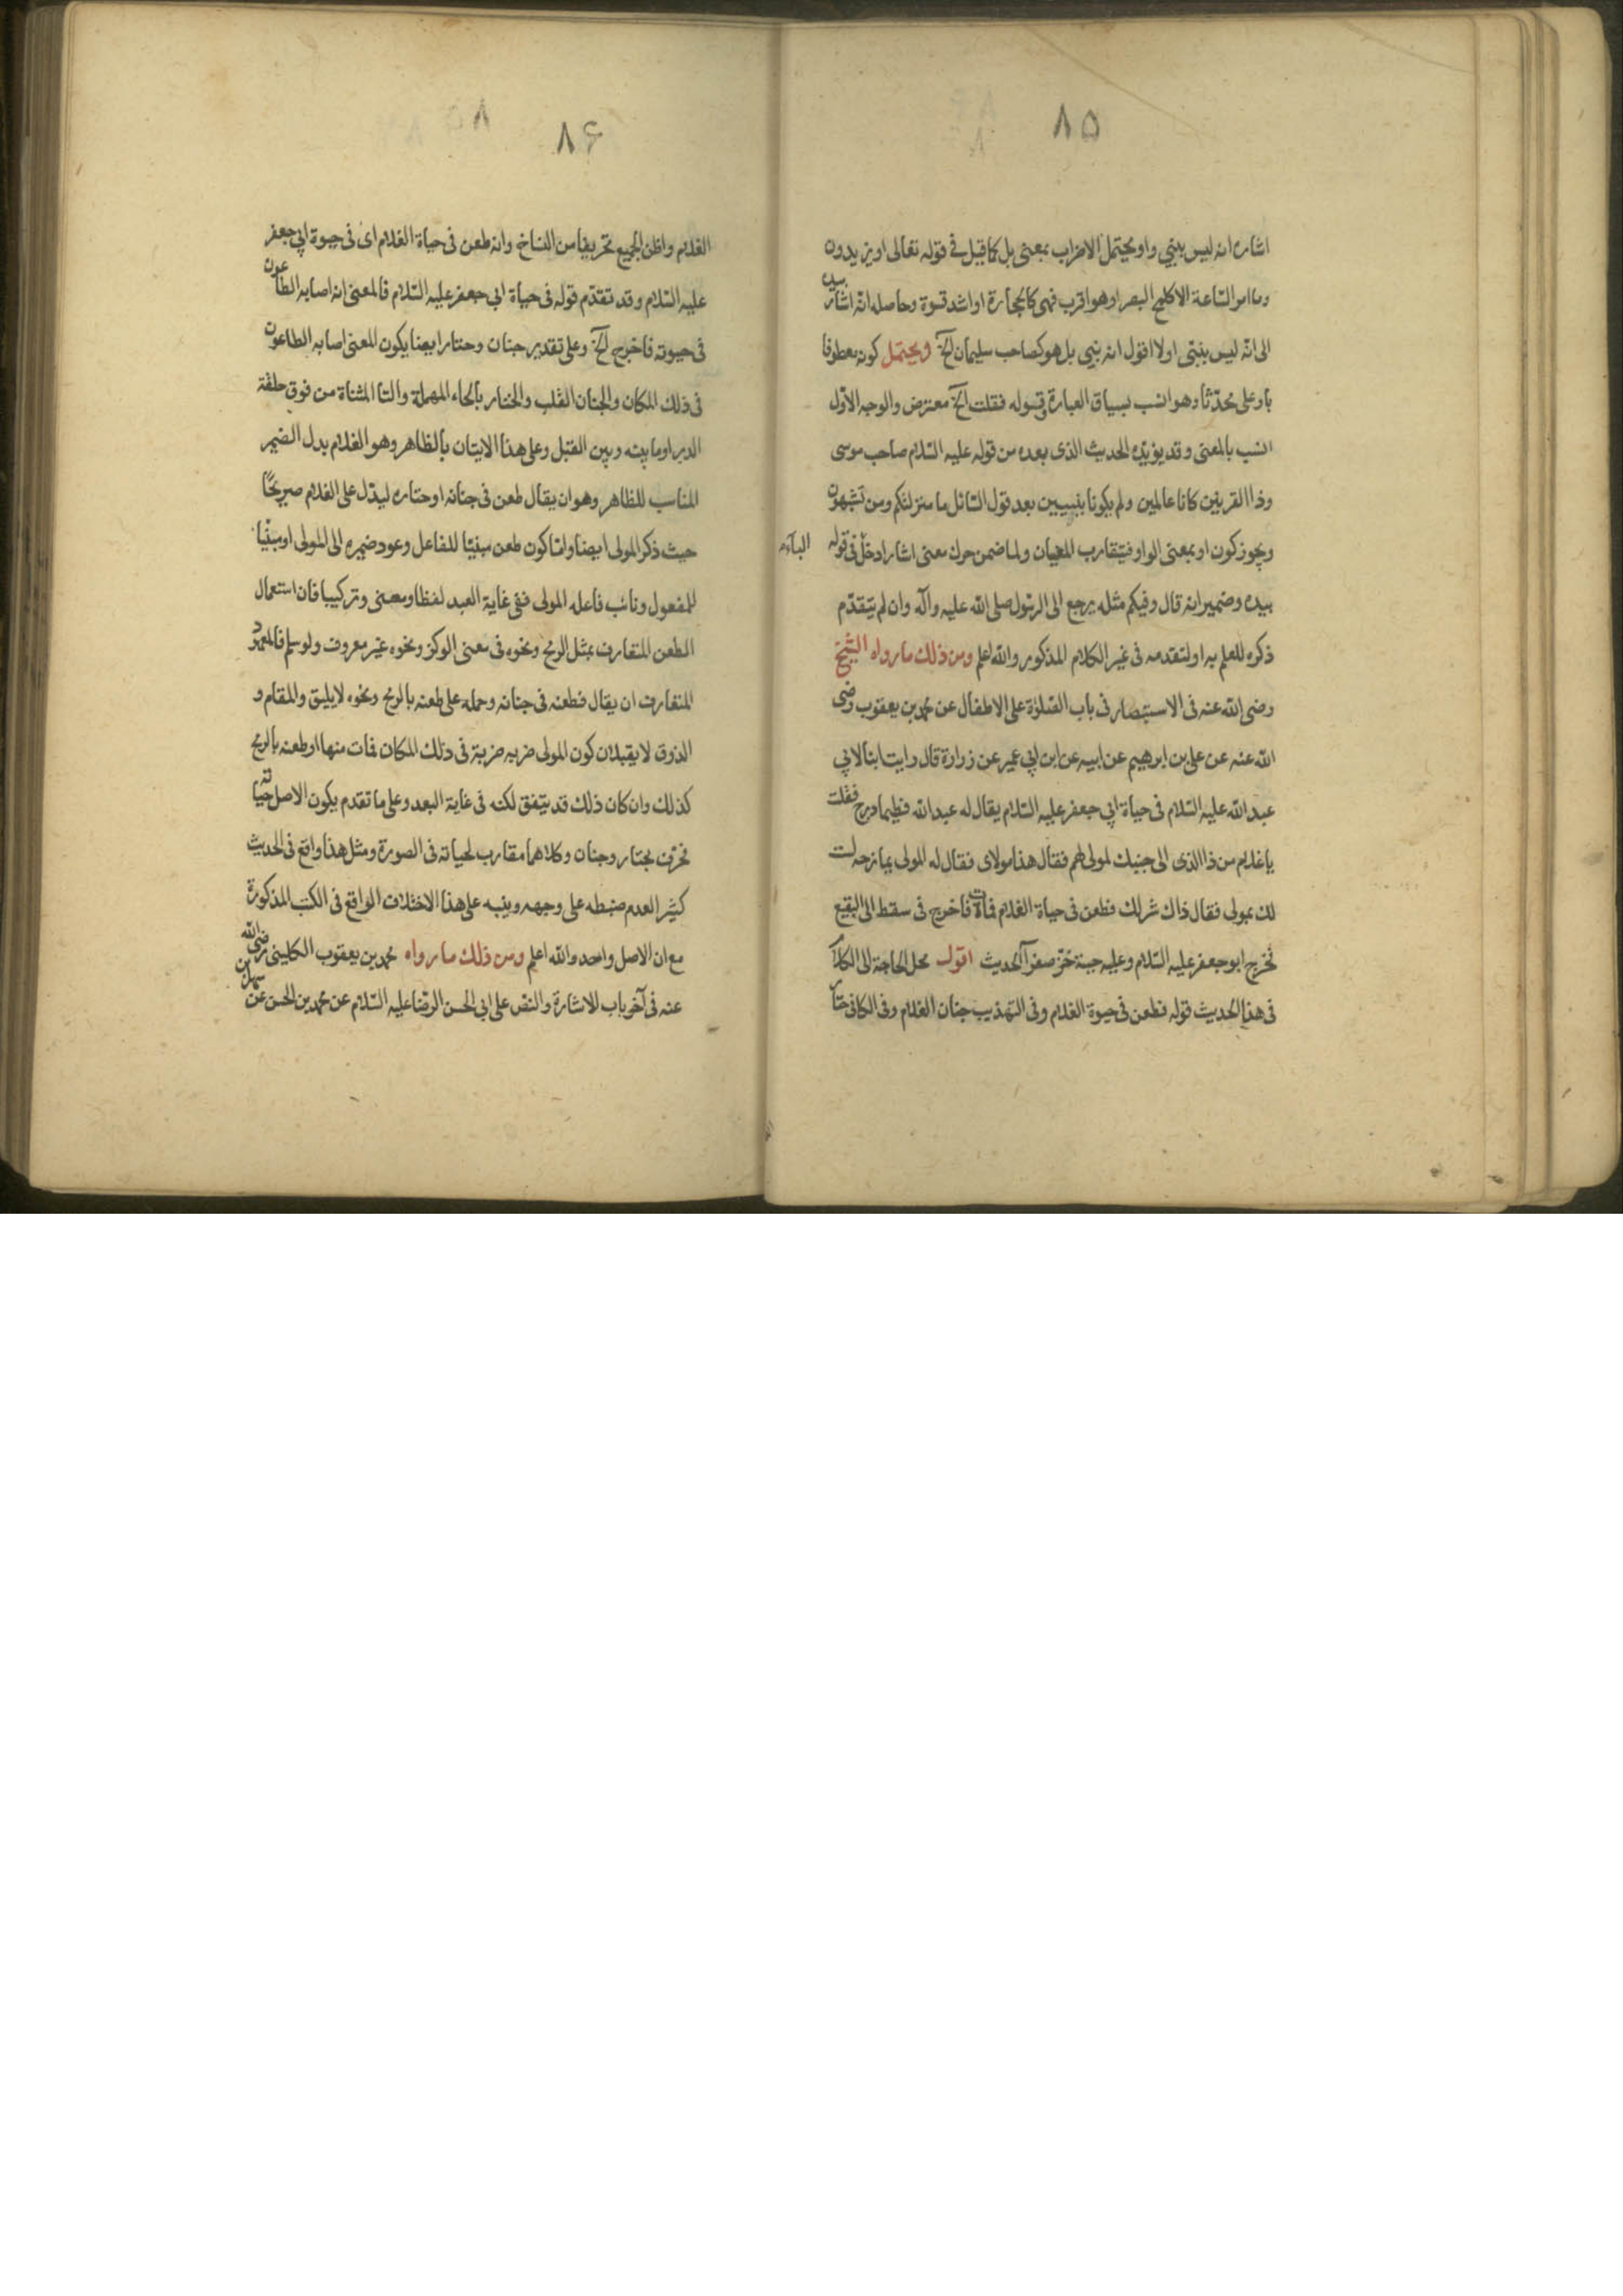 ٨٥
اشاره انه ليس بنبي واو يحتمل الاضراب بمعنى بل كما قيل في قوله تعالى او يزيدون
وما امر الساعة الا كلمح البصر او هو اقرب فهي كالحجارة او اشد قسوة وحاصله انه اشار بيده
الى انه ليس بنبي او لا اقول انه نبي بل هو كصاحب سليمان الخ ويحتمل كونه معطوفا
باو على محدثا وهو انسب بسياق العبارة وقوله فقلت الخ معترض والوجه الاول
انسب بالمعنى وقد يؤيده الحديث الذى بعده من قوله عليه السلام صاحب موسى
وذا القرنين كانا عالمين ولم يكونا بنبيين بعد قول السائل ما منزلتكم ومن تشبهون
ويجوز كون او بمعنى الواو فيتقارب المعنيان ولما ضمن حرك معنى اشار ادخل فى قوله الباء
بيده وضمير انه قال وفيكم مثله يرجع الى الرسول صلى الله عليه وآله وان لم يتقدم
ذكره للعلم به او لتقدمه فى غير الكلام المذكور والله اعلم ومن ذلك ما رواه الشيخ
رضى الله عنه فى الاستبصار فى باب الصلوة على الاطفال عن محمد بن يعقوب رضى
الله عنه عن على بن ابرهيم عن ابيه عن ابن ابي عمير عن زرارة قال رايت ابنا لابي
عبد الله عليه السلام فى حياة ابي جعفر عليه السلام يقال له عبد الله فطيما درج فقلت
يا غلام من ذا الذى الى جنبك لمولى لهم فقال هذا مولاى فقال له المولى يمازحه لست
لك بمولى فقال ذاك شر لك فطعن فى حياة الغلام فمات فاخرج فى سقط الى البقيع
فخرج ابو جعفر عليه السلام وعليه جبة خز صفراء الحديث اقول محل الحاجة الى الكلام
فى هذا الحديث قوله فطعن فى حيوة الغلام وفى التهذيب جنان الغلام وفى الكافى حتار
٨۶
الغلام واظن الجميع تحريفا من النساخ وانه طعن فى حياة الغلام اى فى حيوة ابي جعفر
عليه السلام وقد تقدم قوله فى حياة ابي جعفر عليه السلام فالمعنى انه اصابه الطاعون
فى حيوته فاخرج الخ وعلى تقدير جنان وحتار ايضا يكون المعنى اصابه الطاعون
فى ذلك المكان والجنان القلب والحتار بالحاء المهملة والتا المثناة من فوق حلقة
الدبر او ما بينه وبين القبل وعلى هذا الاتيان بالظاهر وهو الغلام بدل الضمير
المناسب للظاهر وهو ان يقال طعن فى جنانه او حتاره ليدل على الغلام صريحًا
حيث ذكر المولى ايضا واما كون طعن مبنيا للفاعل وعود ضميره الى المولى او مبنيا
للمفعول ونائب فاعله المولى ففى غاية البعد لفظا ومعنى وتركيبا فان استعمال
الطعن المتعارف بمثل الرمح ونحوه فى معنى الوكز ونحوه غير معروف ولو سلم فالمعهود
المتعارف ان يقال فطعنه فى جنانه وحمله على طعنه بالرمح ونحوه لا يليق والمقام و
الذوق لا يقبلان كون المولى ضربه ضربة فى ذلك المكان فمات منها او طعنه بالرمح
كذلك وان كان ذلك قد يتفق لكنه فى غاية البعد وعلى ما تقدم يكون الاصل حياته
فحرفت بحتار وجنان وكلاهما مقارب لحياته فى الصورة ومثل هذا واقع فى الحديث
كثير العدم ضبطه على وجهه وينبه على هذا الاختلاف الواقع فى الكتب المذكورة
مع ان الاصل واحد والله اعلم ومن ذلك ما رواه محمد بن يعقوب الكلينى رضى الله
عنه فى آخر باب الاشارة والنص على ابي الحسن الرضا عليه السلام عن محمد بن الحسن عن سهل بن